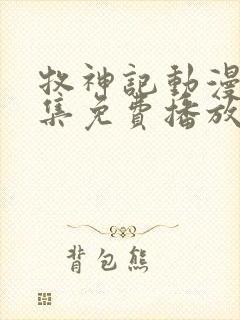 牧神記動漫
集免費播放
背包熊